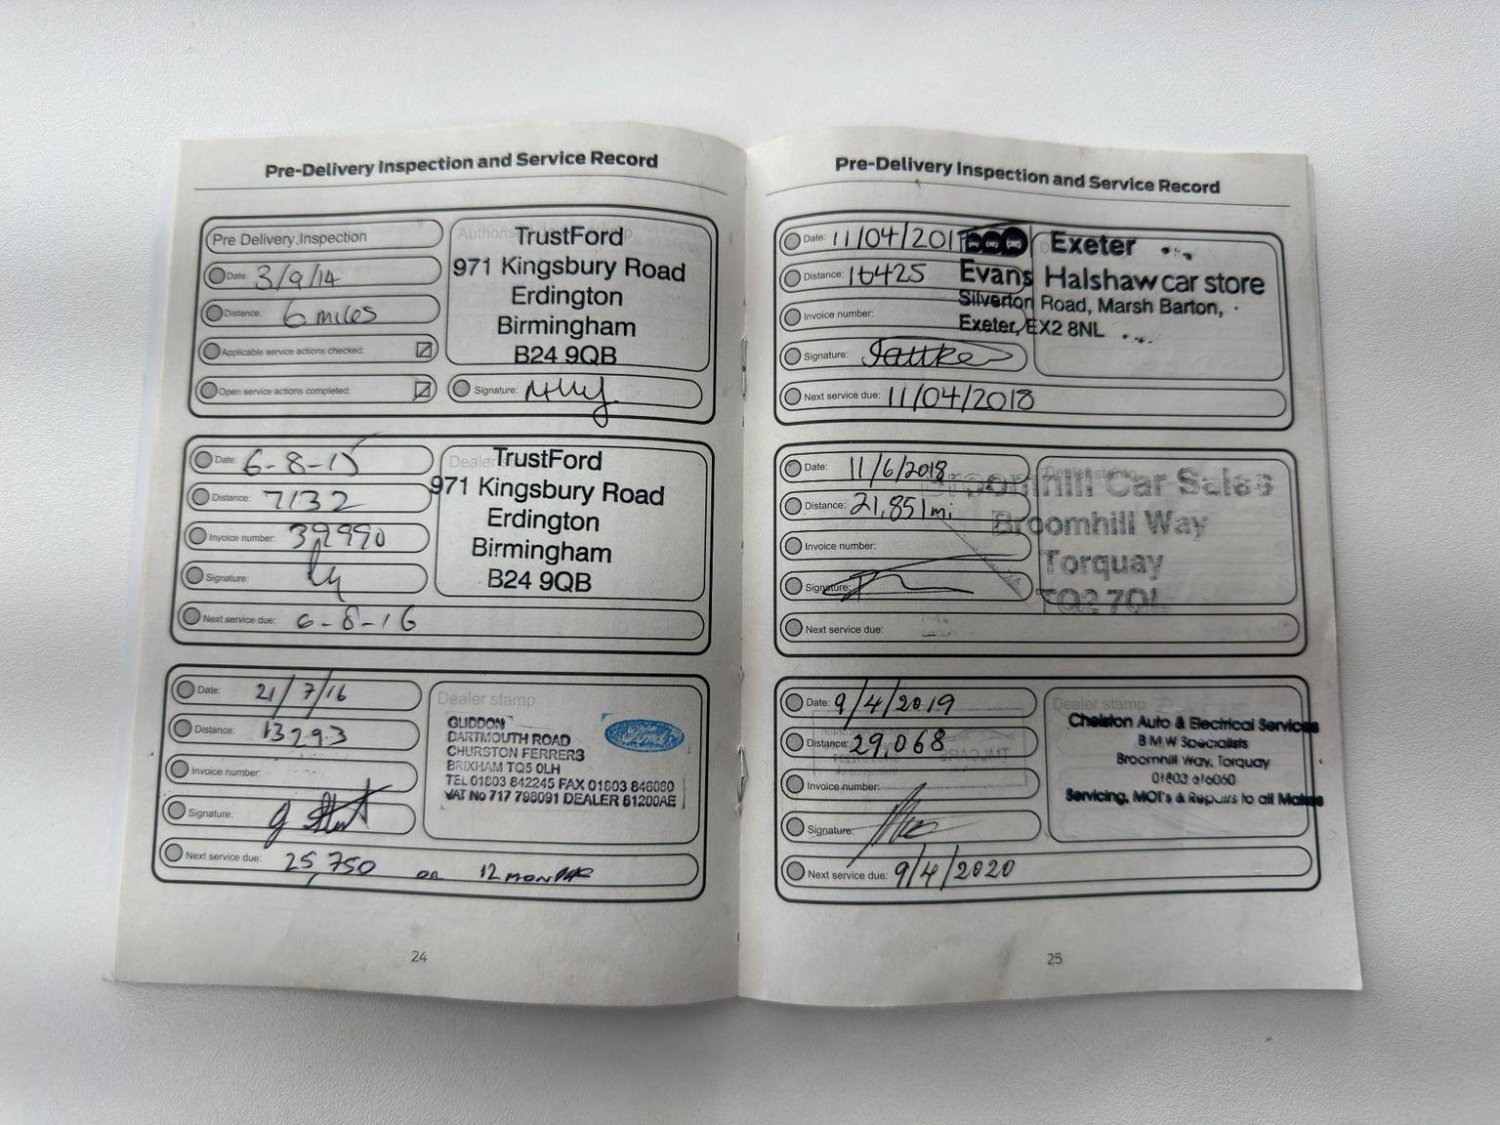 Pre-Delivery Inspection and Service Record
Pre Delivery Inspection
Date: 3/9/14
Distance: 6 miles
Applicable service actions checked:
Open service actions completed:
TrustFord
971 Kingsbury Road
Erdington
Birmingham
B24 9QB
Signature:
Date: 6-8-15
Distance: 7132
Invoice number:
Signature:
Next service due: 6-8-16
TrustFord
971 Kingsbury Road
Erdington
Birmingham
B24 9QB
Date: 21/7/16
Distance: 13293
Invoice number:
Signature:
Next service due: 25,750 OR 12 MONTHS
Dealer stamp
GLIDDON
DARTMOUTH ROAD
CHURSTON FERRERS
BRIXHAM TQ5 0LH
TEL 01803 842245 FAX 01803 846080
VAT No 717 798091 DEALER 81200AE
Ford
24
Pre-Delivery Inspection and Service Record
Date: 11/04/201
Distance: 16425
Invoice number:
Signature:
Next service due: 11/04/2018
Exeter
Evans Halshaw car store
Silverton Road, Marsh Barton,
Exeter, EX2 8NL
Date: 11/6/2018
Distance: 21,851mi
Invoice number:
Signature:
Next service due:
Dealer stamp
Broomhill Car Sales
Broomhill Way
Torquay
TQ2 7QL
Date: 9/4/2019
Distance: 29,068
Invoice number:
Signature:
Next service due: 9/4/2020
Dealer stamp
Chelston Auto & Electrical Services
BMW Specialists
Broomhill Way, Torquay
01803
Servicing, MOT's & Repairs to all Makes
25